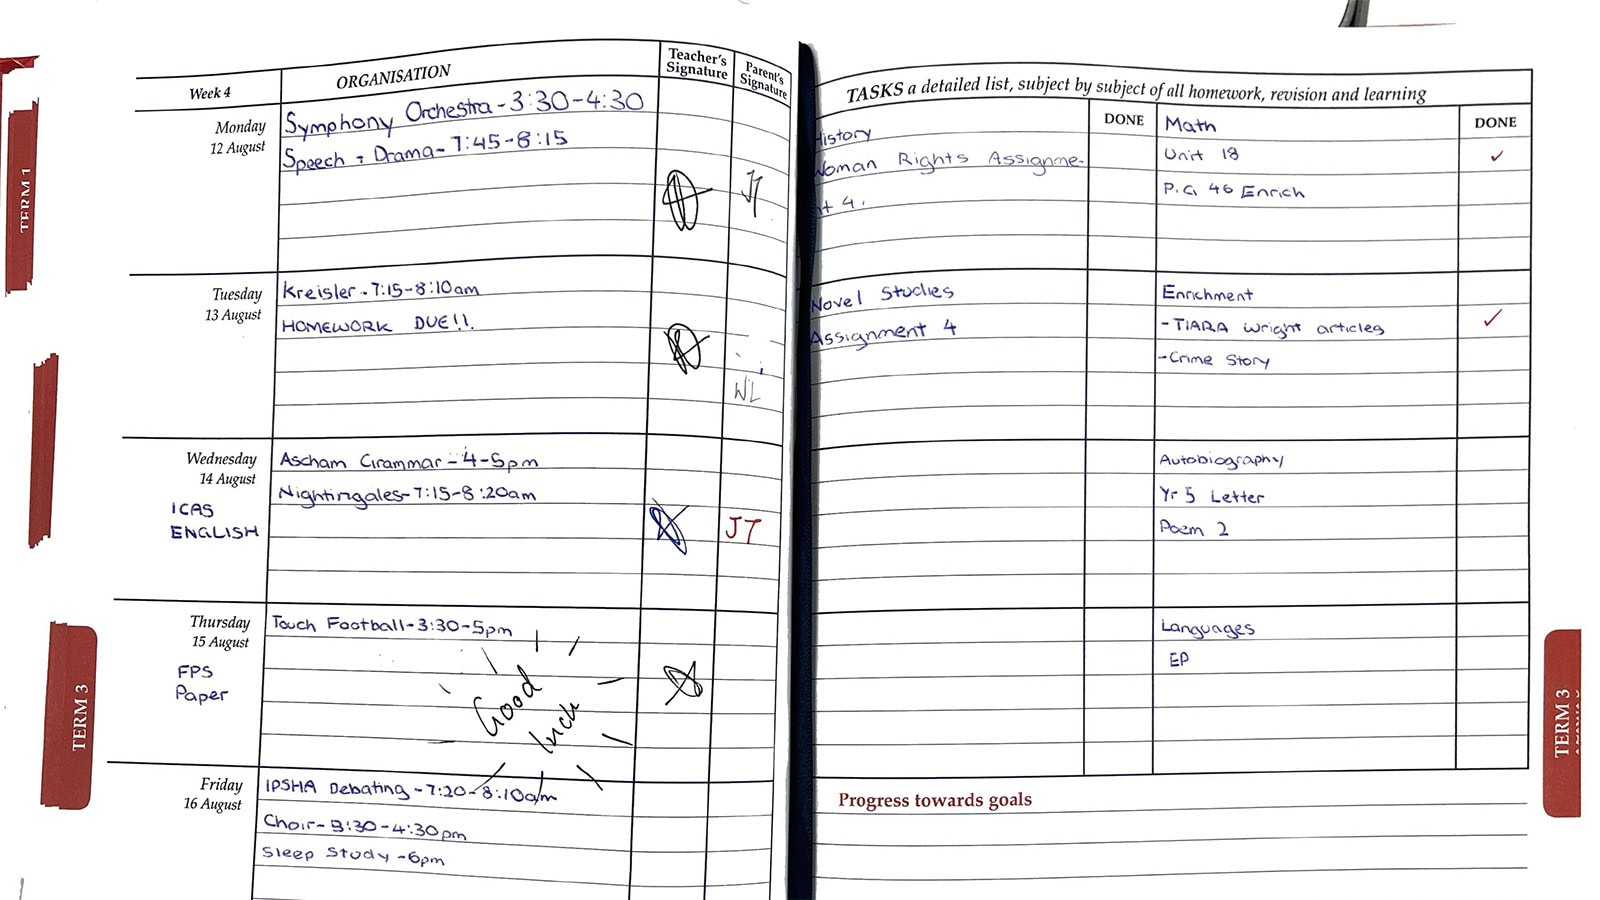 Week 4
ORGANISATION
Teacher's
Signature
Parent's
Signature
Monday
12 August
Symphony Orchestra - 3:30-4:30
Speech + Drama - 7:45-8:15
JT
Tuesday
13 August
Kreisler - 7:15-8:10am
HOMEWORK DUE!!
WL
Wednesday
14 August
ICAS
ENGLISH
Ascham Grammar - 4-5pm
Nightingales - 7:15-8:20am
JT
Thursday
15 August
FPS
Paper
Touch Football - 3:30-5pm
Good
luck
Friday
16 August
IPSHA Debating - 7:20-8:10am
Choir - 3:30-4:30pm
Sleep Study - 6pm
TERM 1
TERM 3
TASKS a detailed list, subject by subject of all homework, revision and learning
DONE
History
Woman Rights Assignme-
nt 4.
Novel Studies
Assignment 4
Math
DONE
Unit 18
P.G 46 Enrich
Enrichment
- TIARA wright articles
- Crime Story
Autobiography
Yr 5 Letter
Poem 2
Languages
EP
Progress towards goals
TERM 3